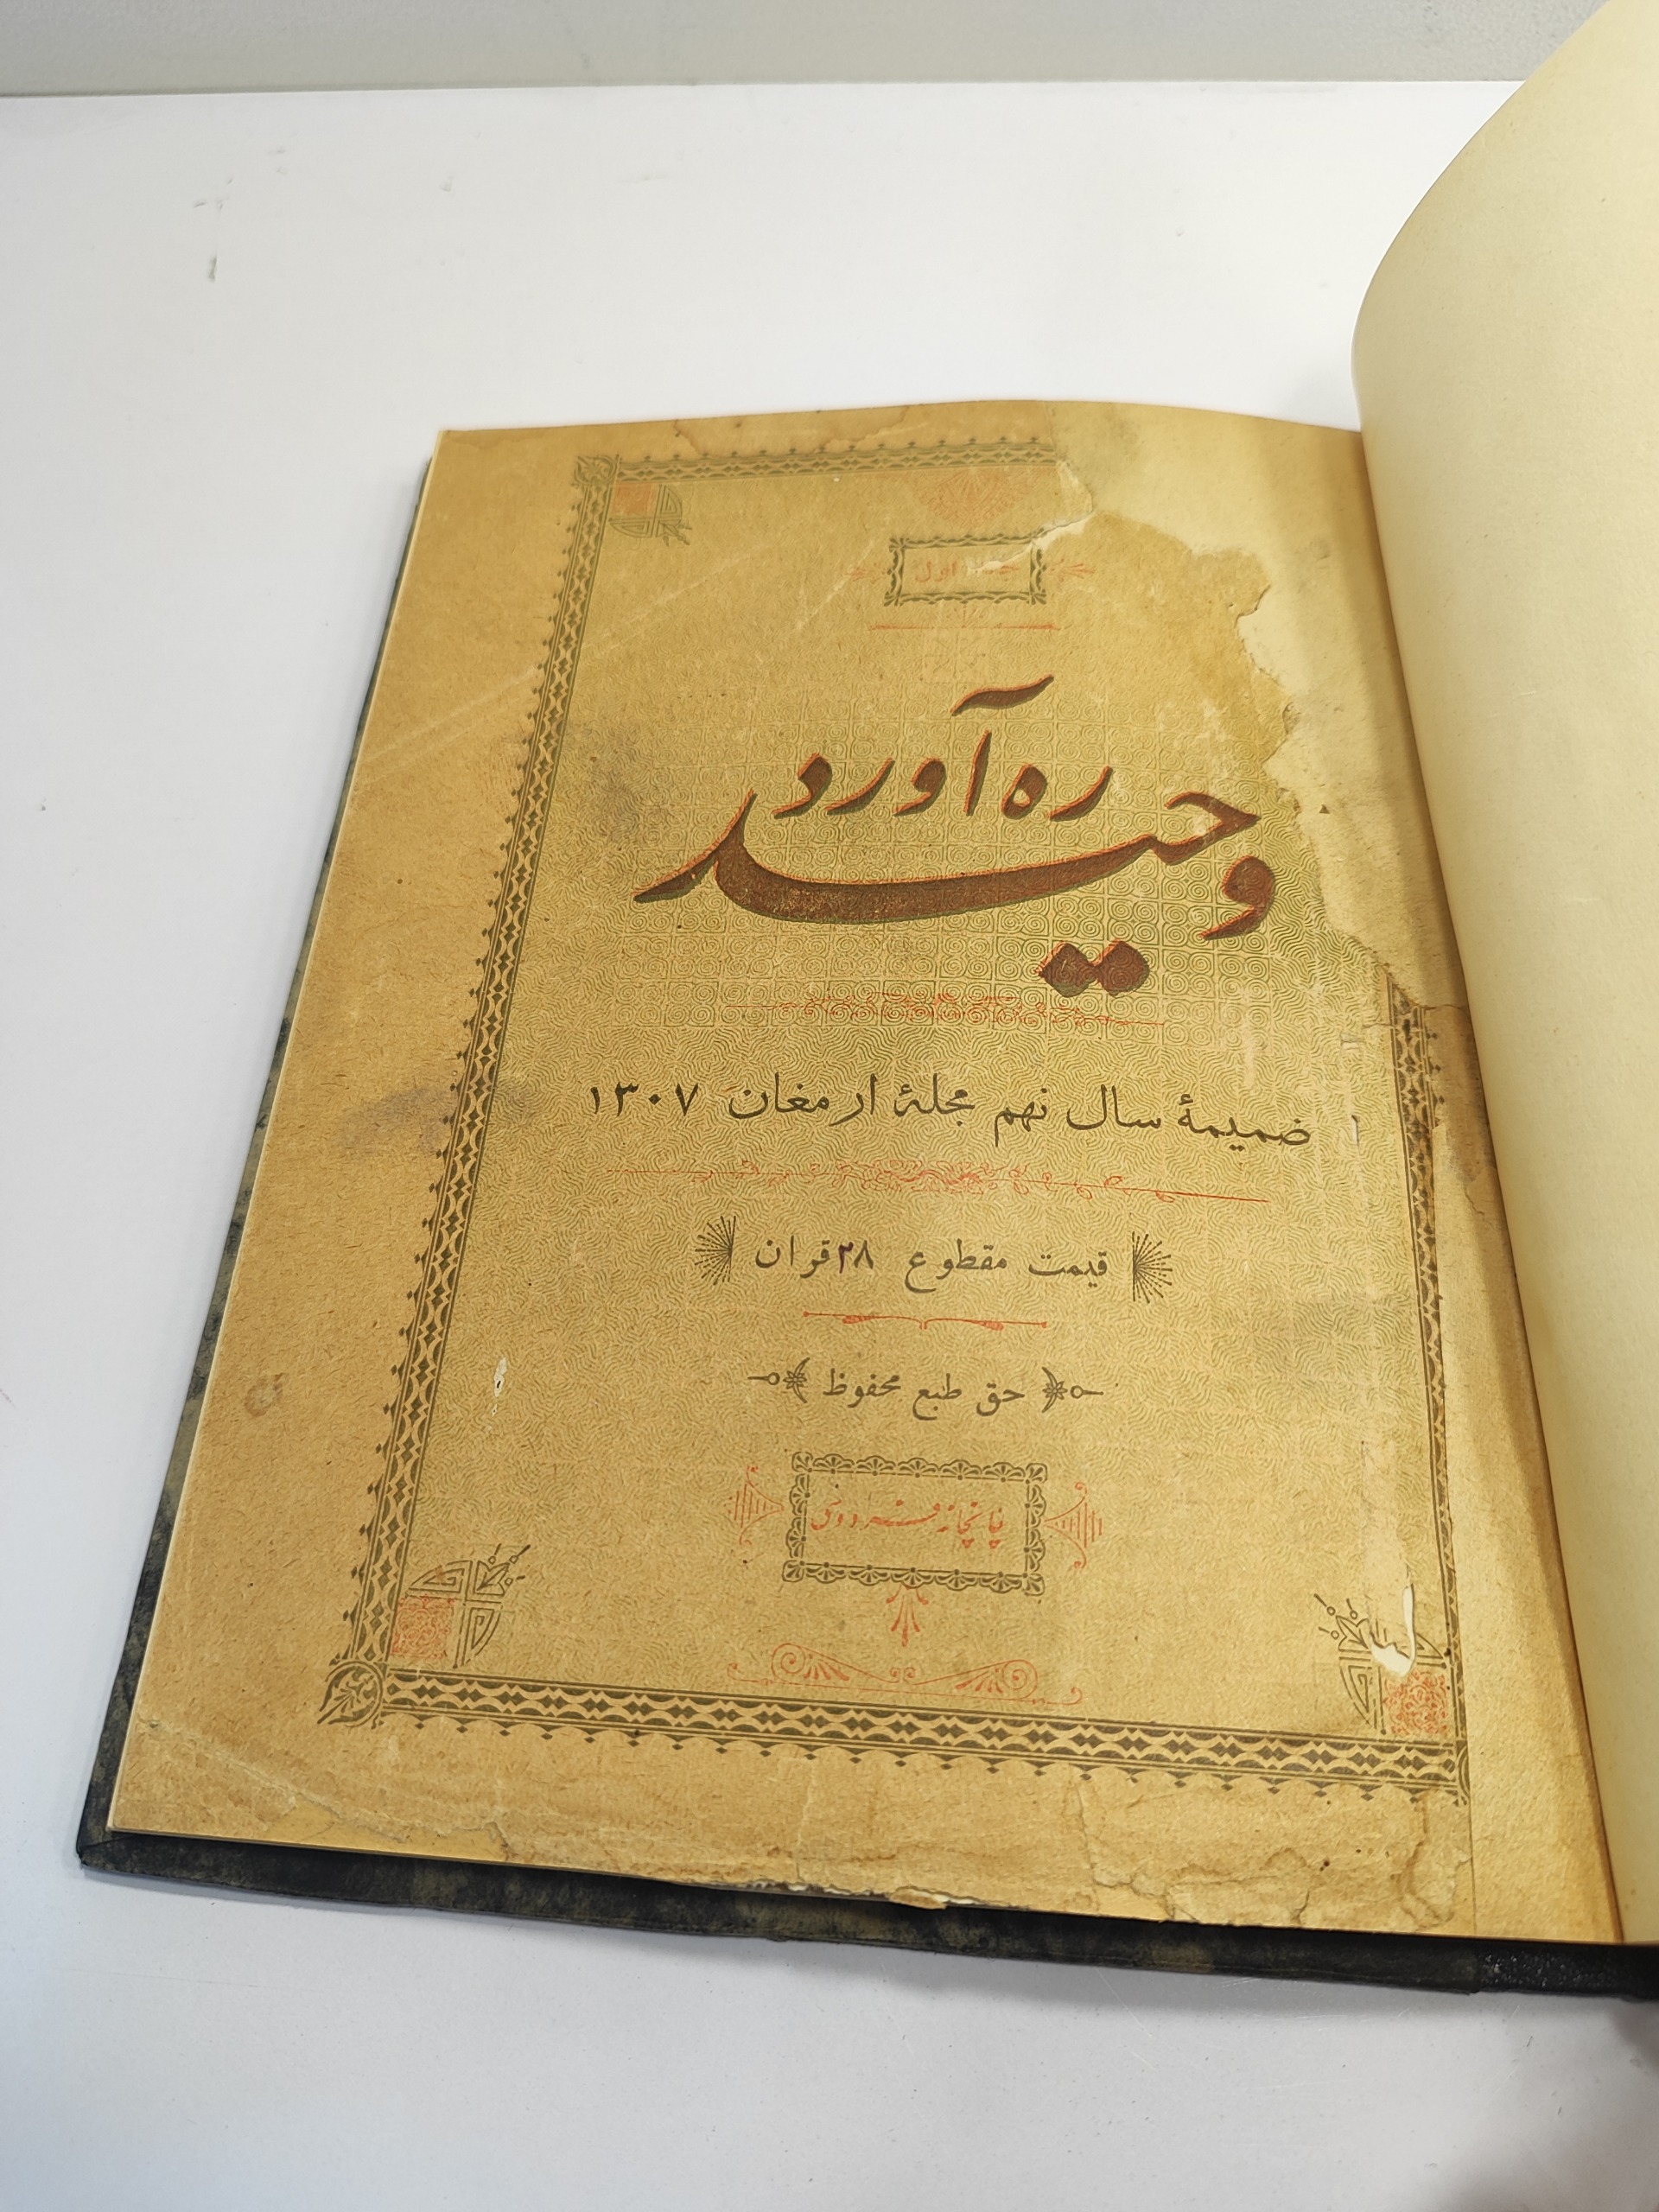 اول
ره آورد
وحید
ضمیمهٔ سال نهم مجلهٔ ارمغان ۱۳۰۷
قیمت مقطوع ۲۸ قران
حق طبع محفوظ
چاپخانه فردوسی